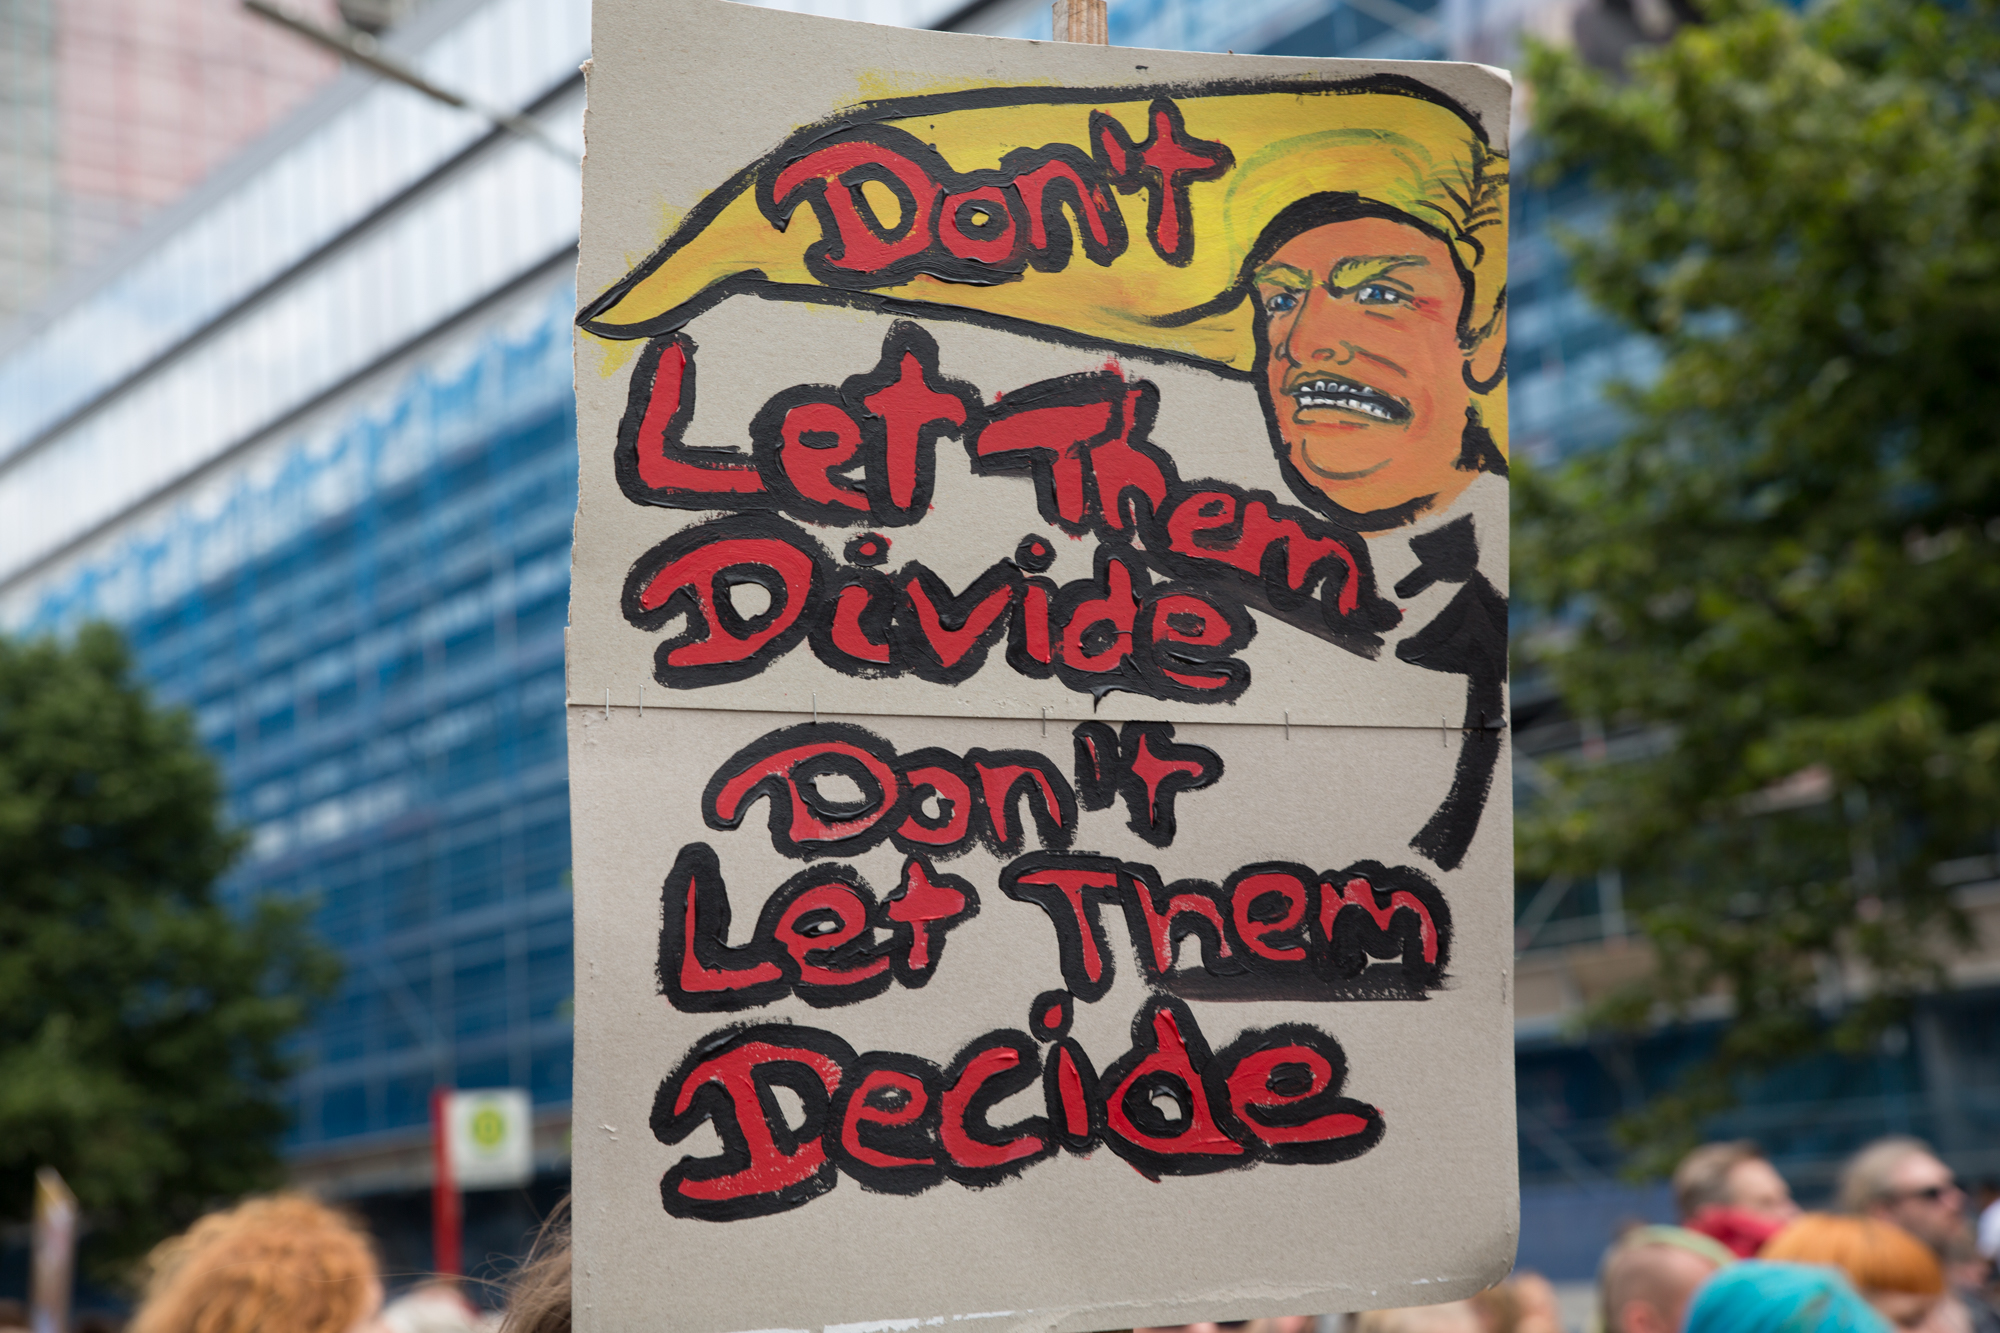 Don't
Let Them
Divide
Don't
Let Them
Decide